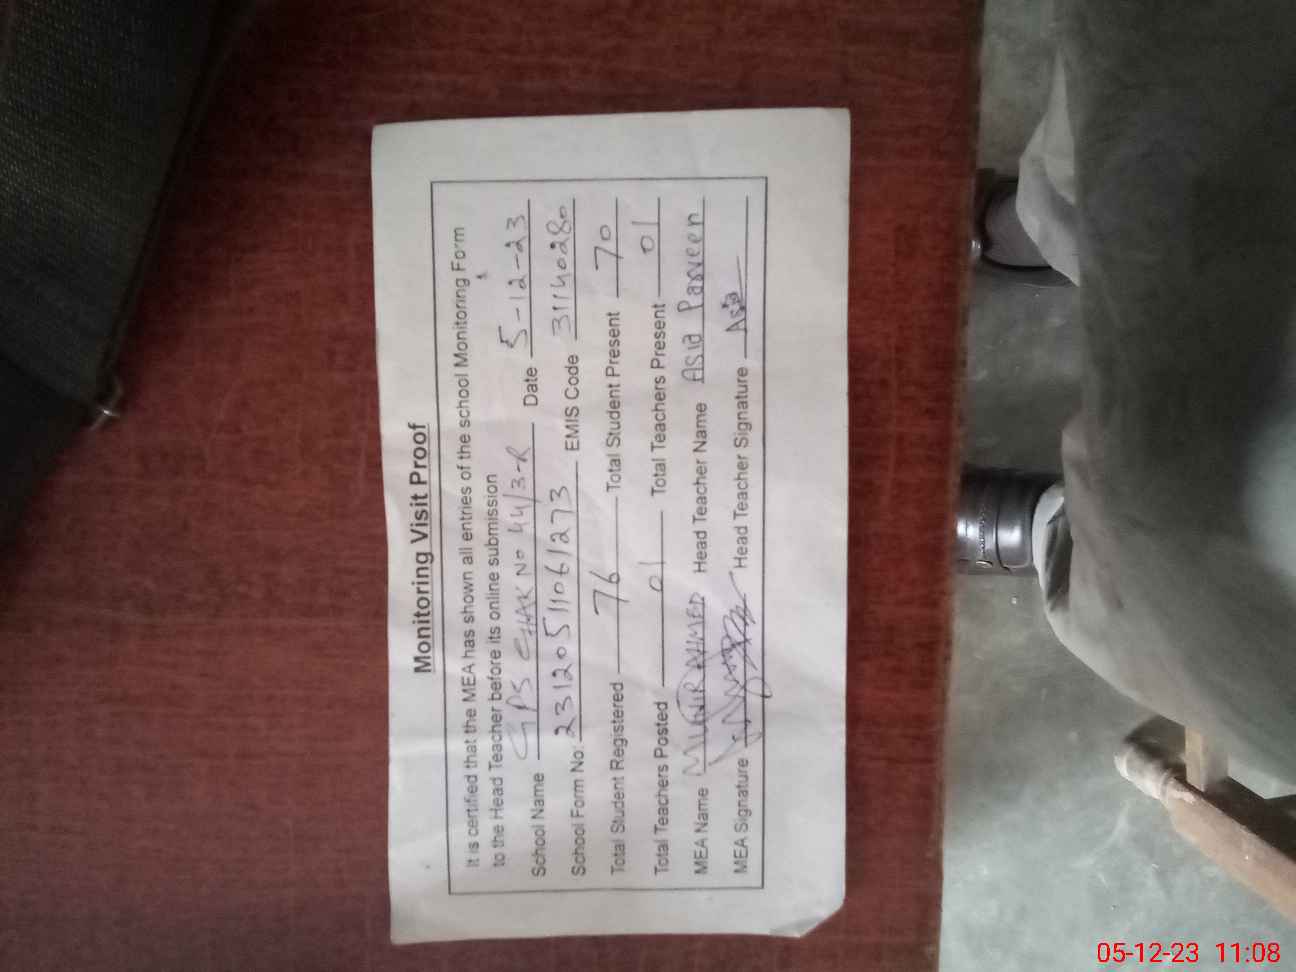 Monitoring Visit Proof
It is certified that the MEA has shown all entries of the school Monitoring Form
to the Head Teacher before its online submission
School Name GPS CHAK No 44/3-R Date 5-12-23
School Form No: 23120511061273 EMIS Code 31140280
Total Student Registered 76 Total Student Present 70
Total Teachers Posted 01 Total Teachers Present 01
MEA Name MUNIR AHMED Head Teacher Name Asia Parveen
MEA Signature Head Teacher Signature Asia
05-12-23 11:08